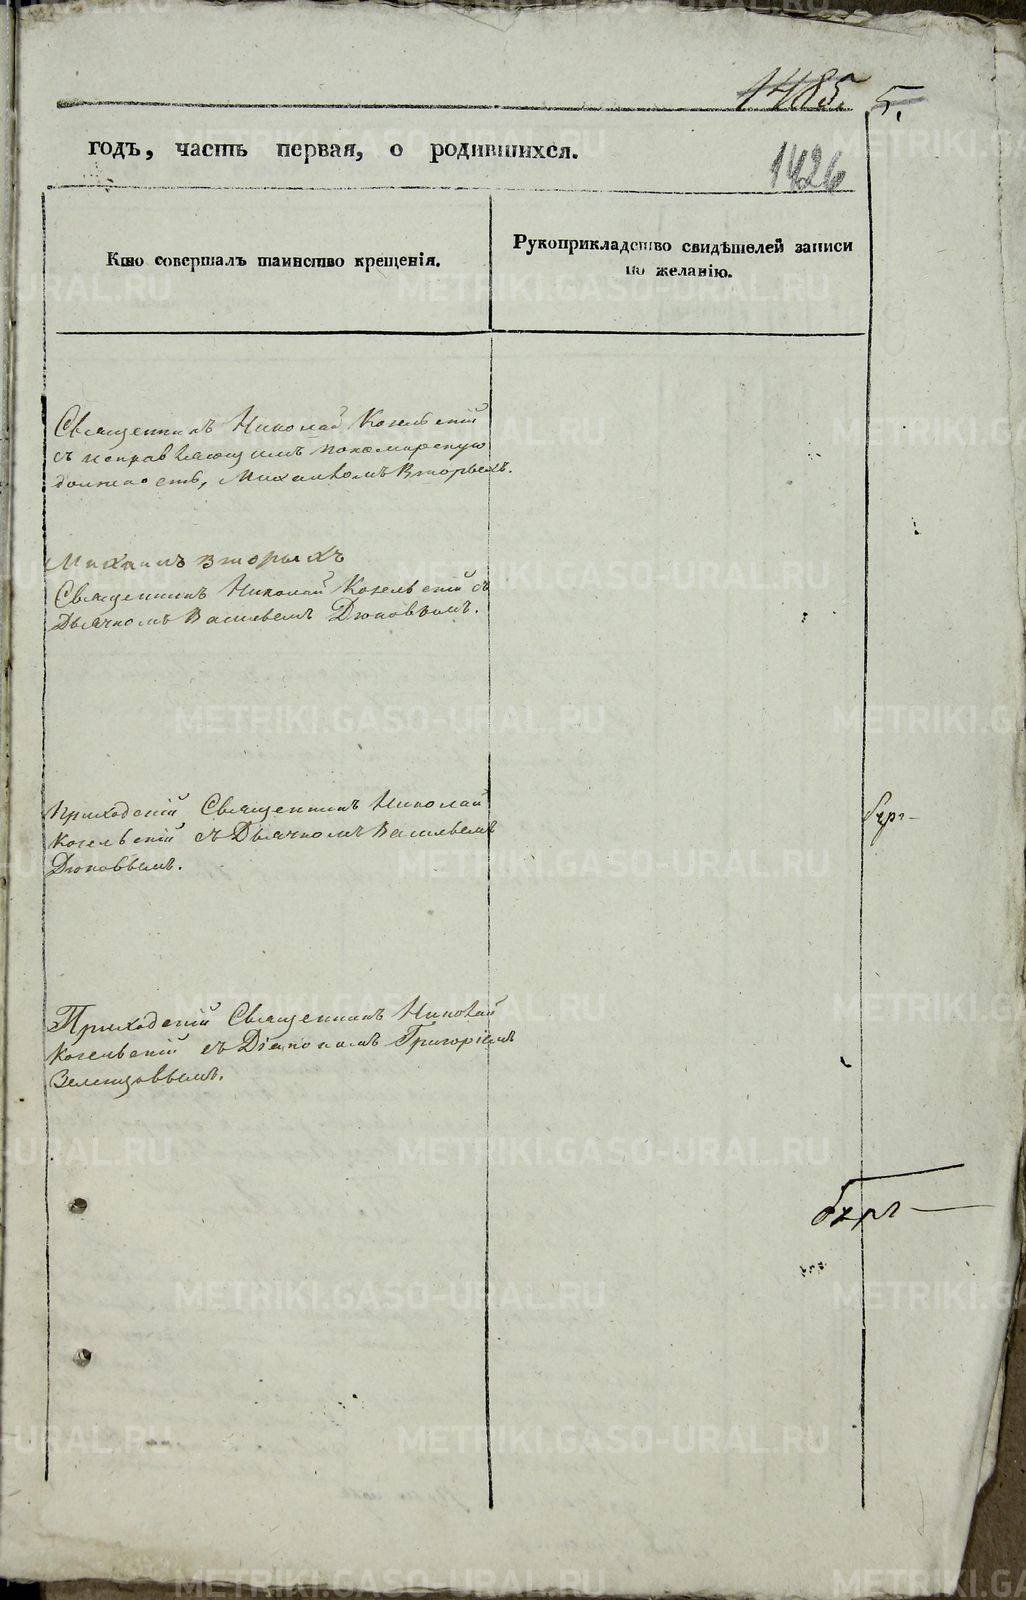 1485. 5.
годъ, часть первая, о родившихся.
1426
Кто совершалъ таинство крещенія.
Рукоприкладство свидѣтелей записи
по желанію.
Священникъ Николай Козельскій
съ исправляющимъ пономарскую
должность, Михаиломъ Вторыхъ.
Михаилъ Вторыхъ
Священникъ Николай Козельскій съ
Дьячкомъ Васильемъ Дюковымъ.
Приходскій Священникъ Николай
Козельскій съ Дьячкомъ Васильемъ
Дюковымъ.
Приходскій Священникъ Николай
Козельскій съ Діакономъ Григоріемъ
Зеленцовымъ.
METRIKI.GASO-URAL.RU